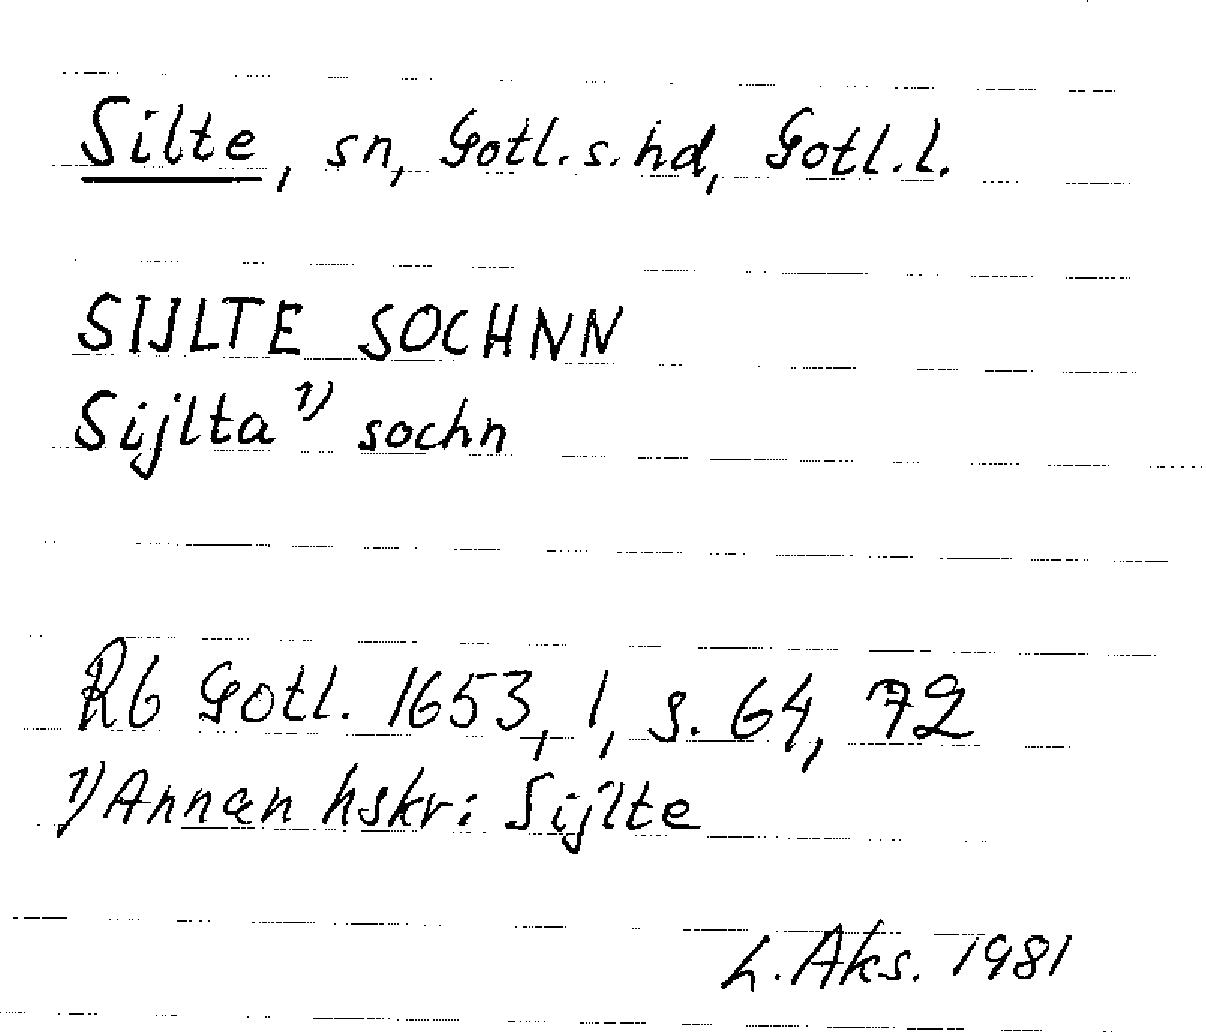 Silte, sn, Gotl. s. hd, Gotl. l.
SIJLTE SOCHNN
Sijlta 1) sochn
Rb Gotl. 1653, 1, s. 64, 72
1) Annan hskr: Sijlte
L. Aks. 1981